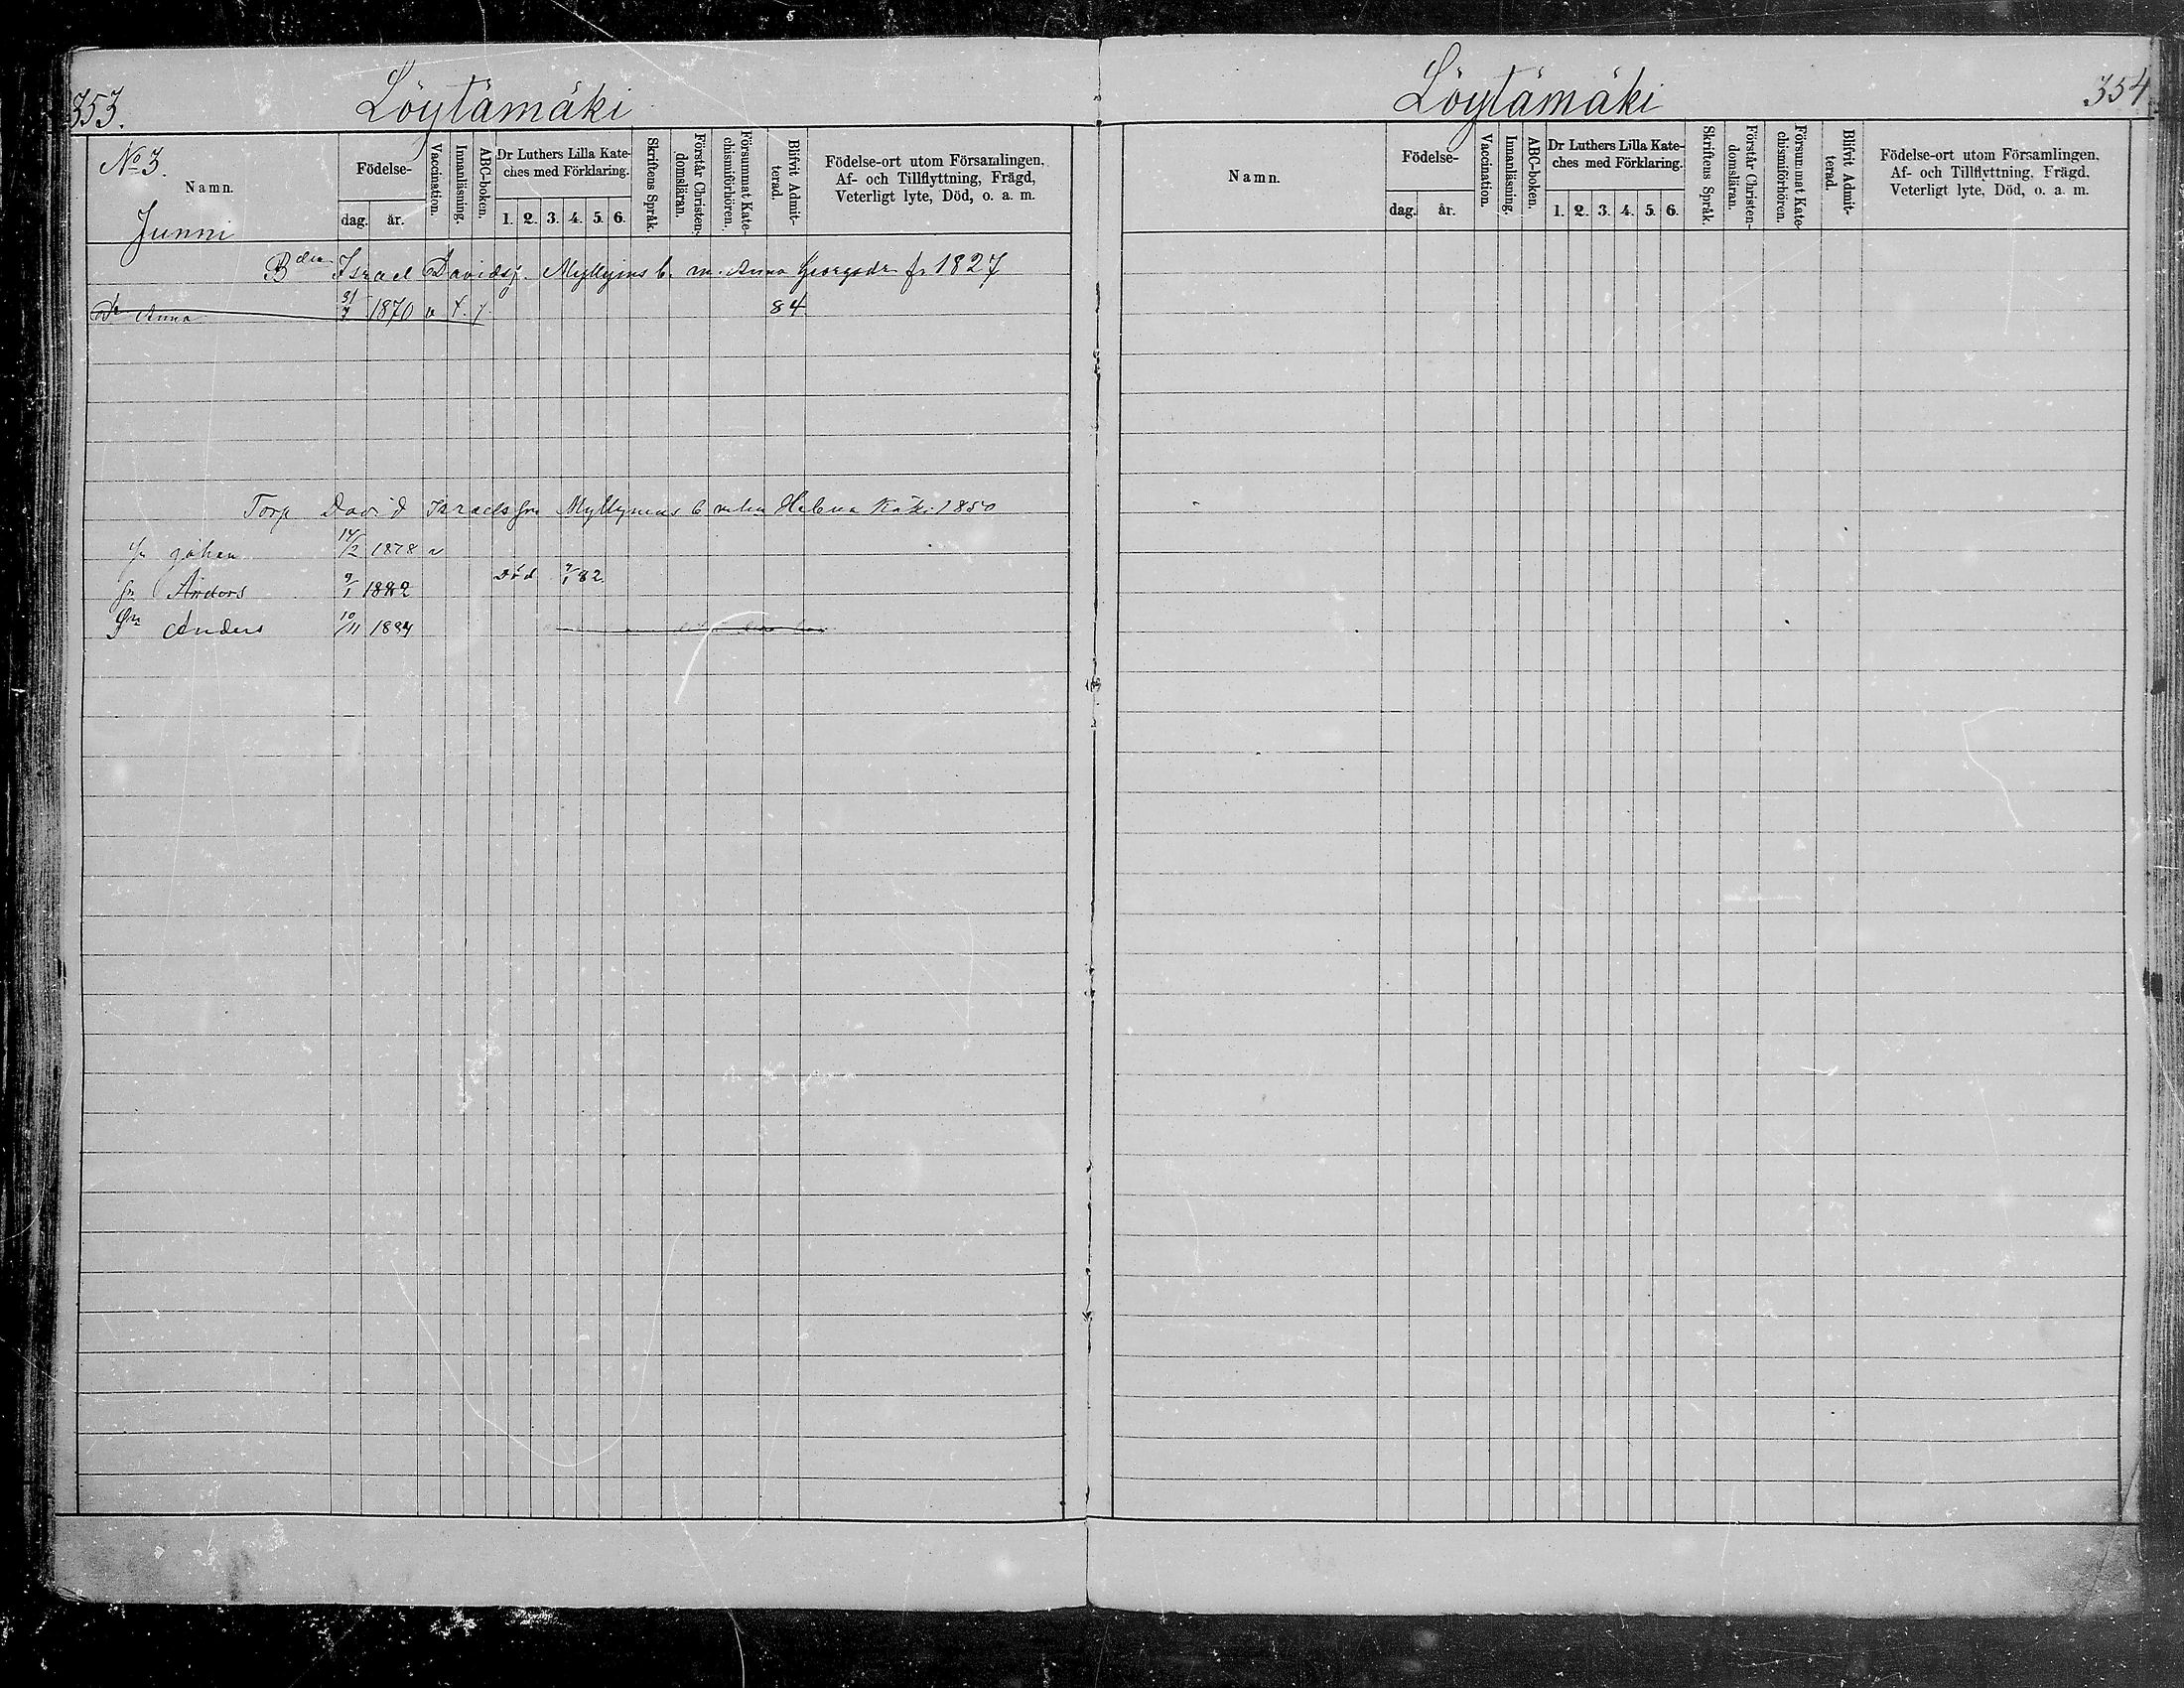 353.
Löytämäki
No 3.
Namn.
Junni
Födelse-
dag. år.
Vaccination.
Innanläsning.
ABC-boken.
Dr Luthers Lilla Kate-
ches med Förklaring.
1. 2. 3. 4. 5. 6.
Skriftens Språk.
Förstår Christen-
domsläran.
Försummat Kate-
chismiförhören.
Blifvit Admit-
terad.
Födelse-ort utom Församlingen,
Af- och Tillflyttning, Frägd,
Veterligt lyte, Död, o. a. m.
Israel Davids Myllymns b. m. Anna Georgsdr f. 1827
Dr Anna 31/7 1870 v 84
Torp David Israels sn Myllymns b Helena 1850
Johan 14/2 1878 v
sn Anders 9/1 1882 Död 82
Sn Anders 10/11 1884
Löytämäki
354
Namn.
Födelse-
dag. år.
Vaccination.
Innanläsning.
ABC-boken.
Dr Luthers Lilla Kate-
ches med Förklaring.
1. 2. 3. 4. 5. 6.
Skriftens Språk.
Förstår Christen-
domsläran.
Försummat Kate-
chismiförhören.
Blifvit Admit-
terad.
Födelse-ort utom Församlingen,
Af- och Tillflyttning, Frägd,
Veterligt lyte, Död, o. a. m.